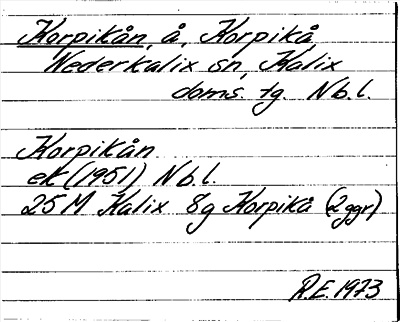 Korpikån, å, Korpikå
Nederkalix sn, Kalix
doms. tg. Nb.l.
Korpikån
ek (1951) Nb.l.
25M Kalix 8g Korpikå (2ggr)
R.E. 1973